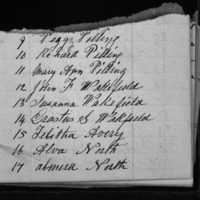 9 Peggy Pilling
10 Richard Pilling
11 Mary Ann Pilling
12 John F Wakefield
13 Susanna Wakefield
14 Erastus S Wakfield
15 Tebitha Avery
16 Alva North
17 almira North